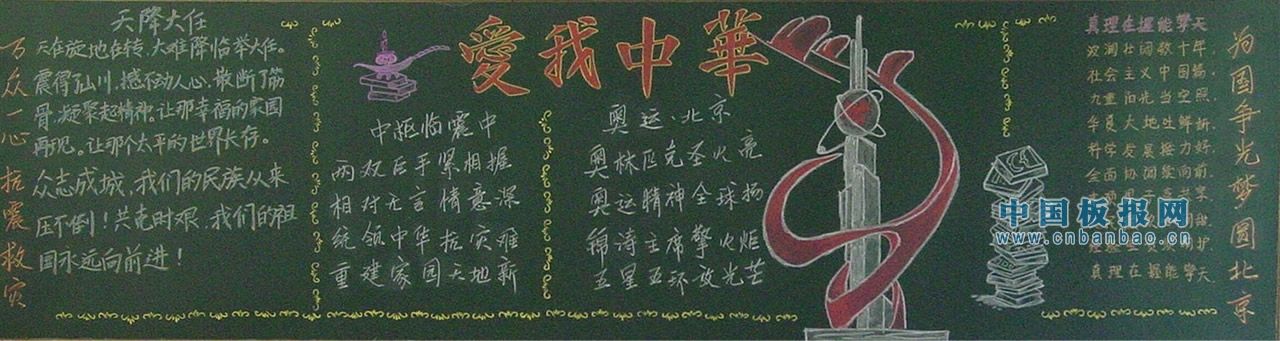 愛我中華
万众一心 抗震救灾
天降大任
天在旋地在转，大难降临举大任。
震得了山川，撼不动人心，散断了筋
骨，凝聚起精神。让那幸福的家园
再现。让那个太平的世界长存。
众志成城，我们的民族从来
压不倒！共克时艰，我们的祖
国永远向前进！
中枢临震中
两双巨手紧相握
相对无言情意深
统领中华抗灾难
重建家园天地新
奥运·北京
奥林匹克圣火亮
奥运精神全球扬
锦涛主席擎火炬
五星五环放光芒
真理在握能擎天
波澜壮阔数十年，
社会主义中国
九重阳光当空照，
华夏大地生鲜
科学发展接力好，
全面协调续向前，
真理在握能擎天
为国争光 梦圆北京
中国板报网
www.cnbanbao.cn